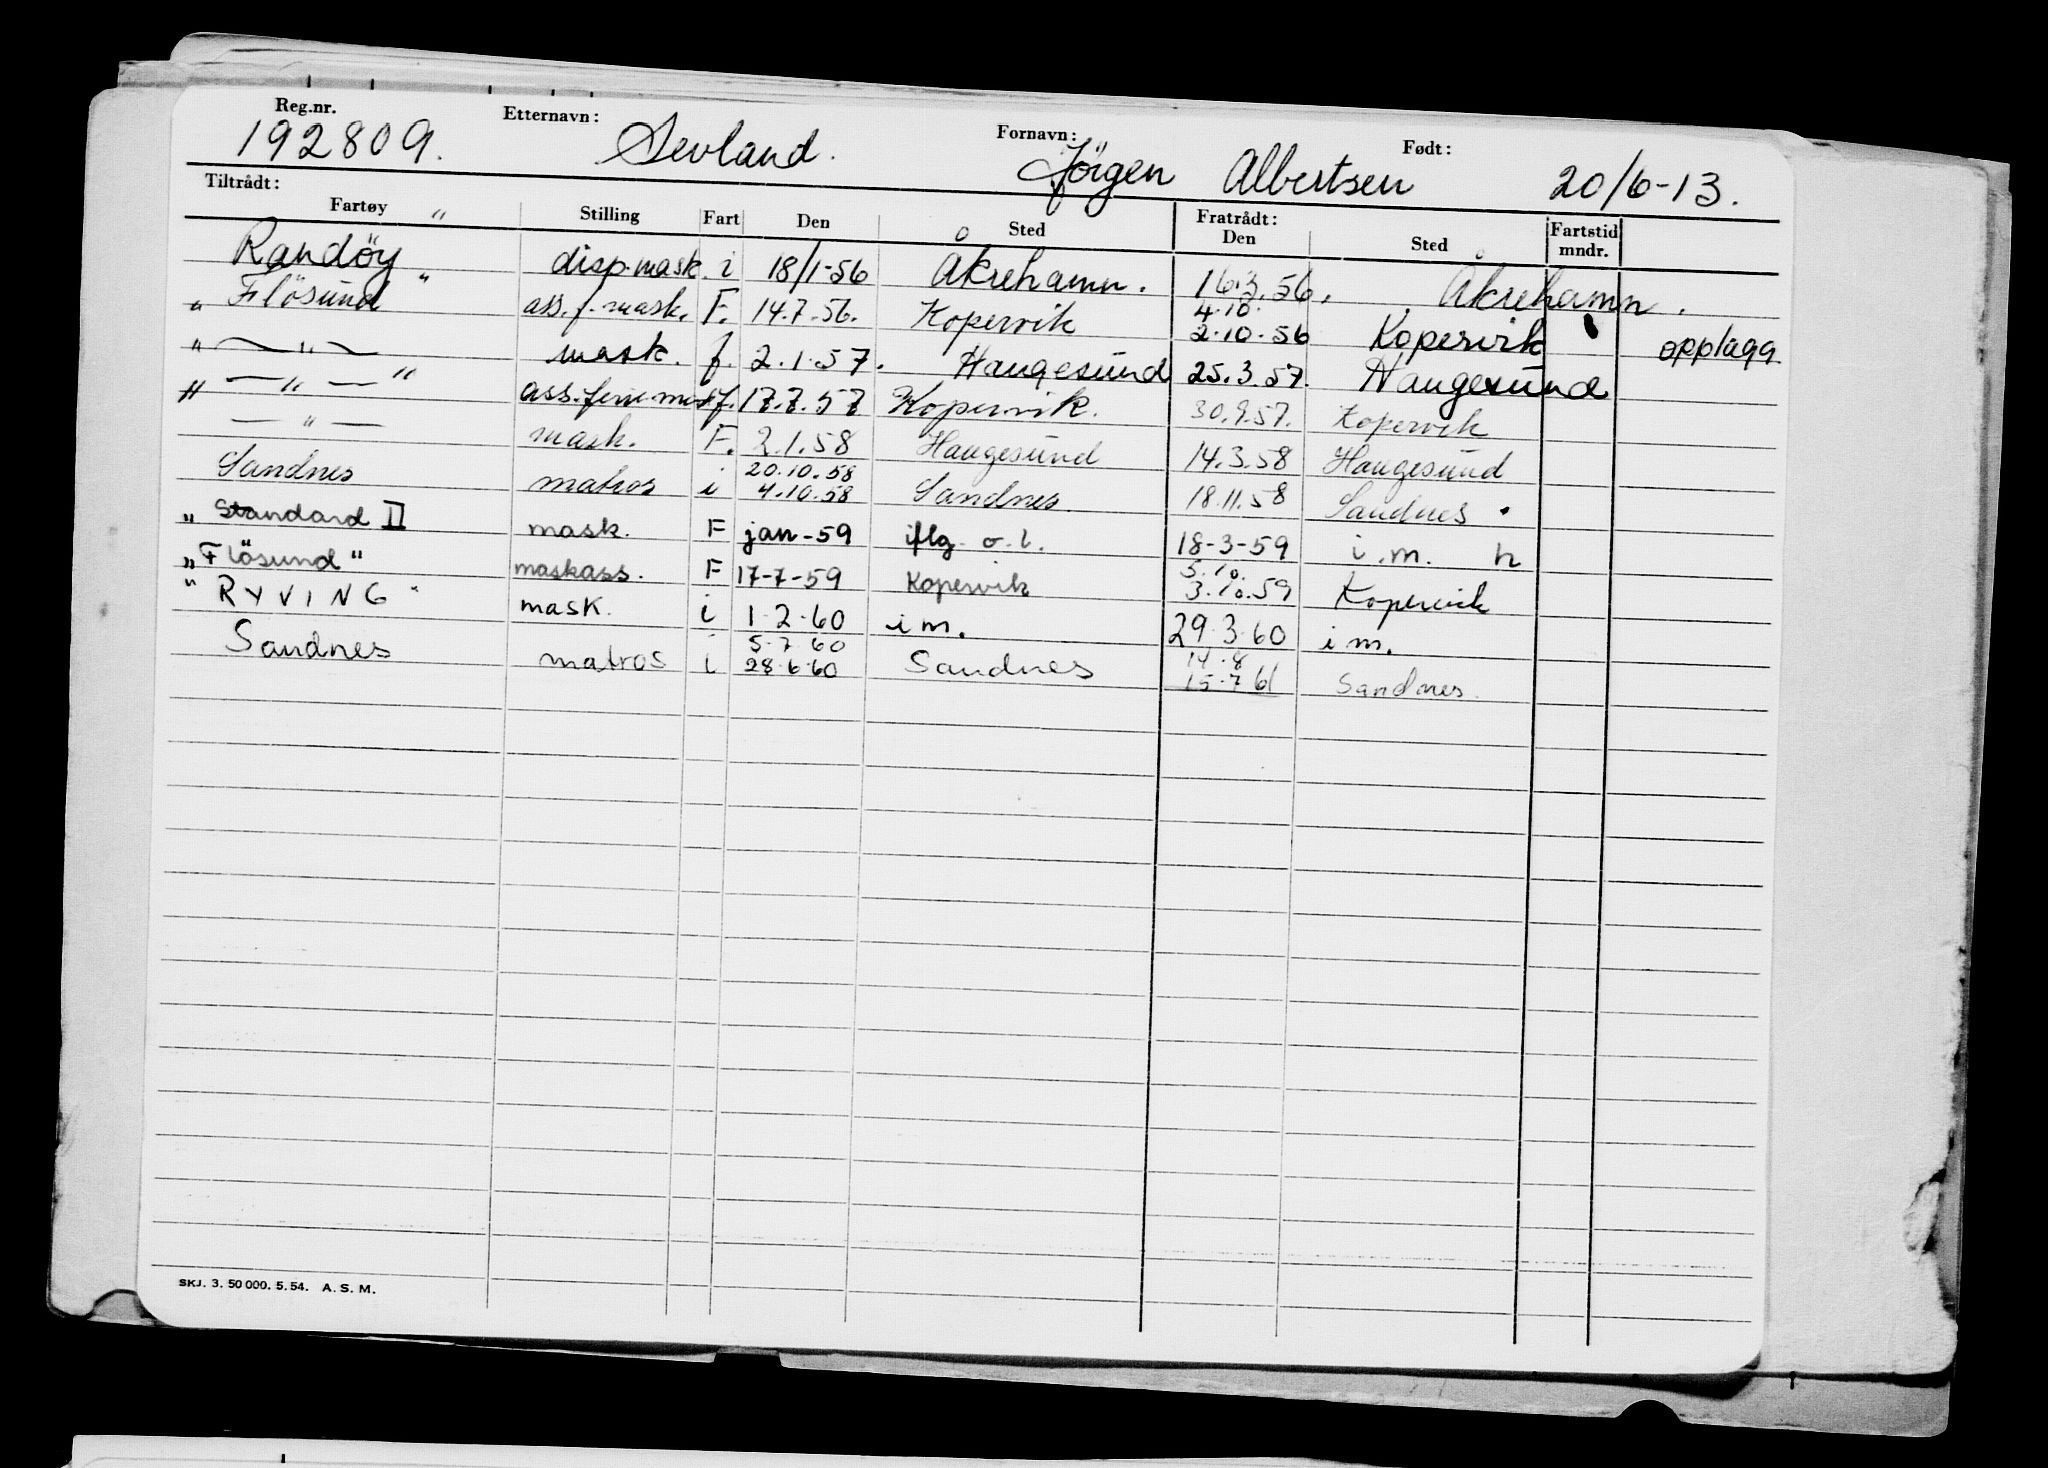 Reg.nr. Etternavn: Fornavn: Født:
192809. Sevland. Jörgen Albertsen 20/6-13.
Tiltrådt: Fratrådt:
Fartøy Stilling Fart Den Sted Den Sted Fartstid mndr.
"Randöy" disp.mask. i 18/1-56 Åkrehamn. 16.3.56. Åkrehamn.
" Flösund " ass. f. mask. F. 14.7.56. Kopervik 4.10. 2.10.56 Kopervik opplagg.
" — " — mask. f. 2.1.57. Haugesund 25.3.57. Haugesund
" — " — " f. 17.7.57 Kopervik. 30.9.57. Kopervik
— " — mask. F. 2.1.58 Haugesund 14.3.58 Haugesund
Sandnes matros i 20.10.58 4.10.58 Sandnes. 18.11.58 Sandnes.
" Standard II mask. F jan-59 iflg. o.l. 18-3-59 i.m. h
"Flösund" maskass. F 17-7-59 Kopervik 5.10. 3.10.59 Kopervik
" RYVING " mask. i 1.2.60 i m. 29.3.60 i m.
Sandnes matros i 5.7.60 28.6.60 Sandnes 14.8 15.7 61 Sandnes.
SKJ. 3. 50 000. 5. 54. A. S. M.